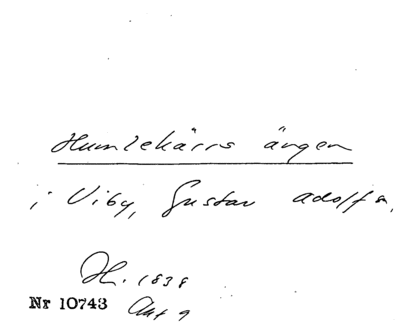 Humlekärrs ängen
i Viby, Gustav adolf s,
H. 1838
Nr 10743 Akt 9